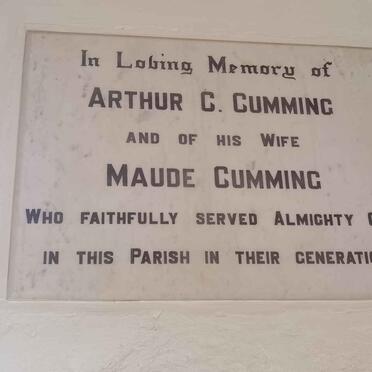 In Loving Memory of
ARTHUR C. CUMMING
AND OF HIS WIFE
MAUDE CUMMING
WHO FAITHFULLY SERVED ALMIGHTY
IN THIS PARISH IN THEIR